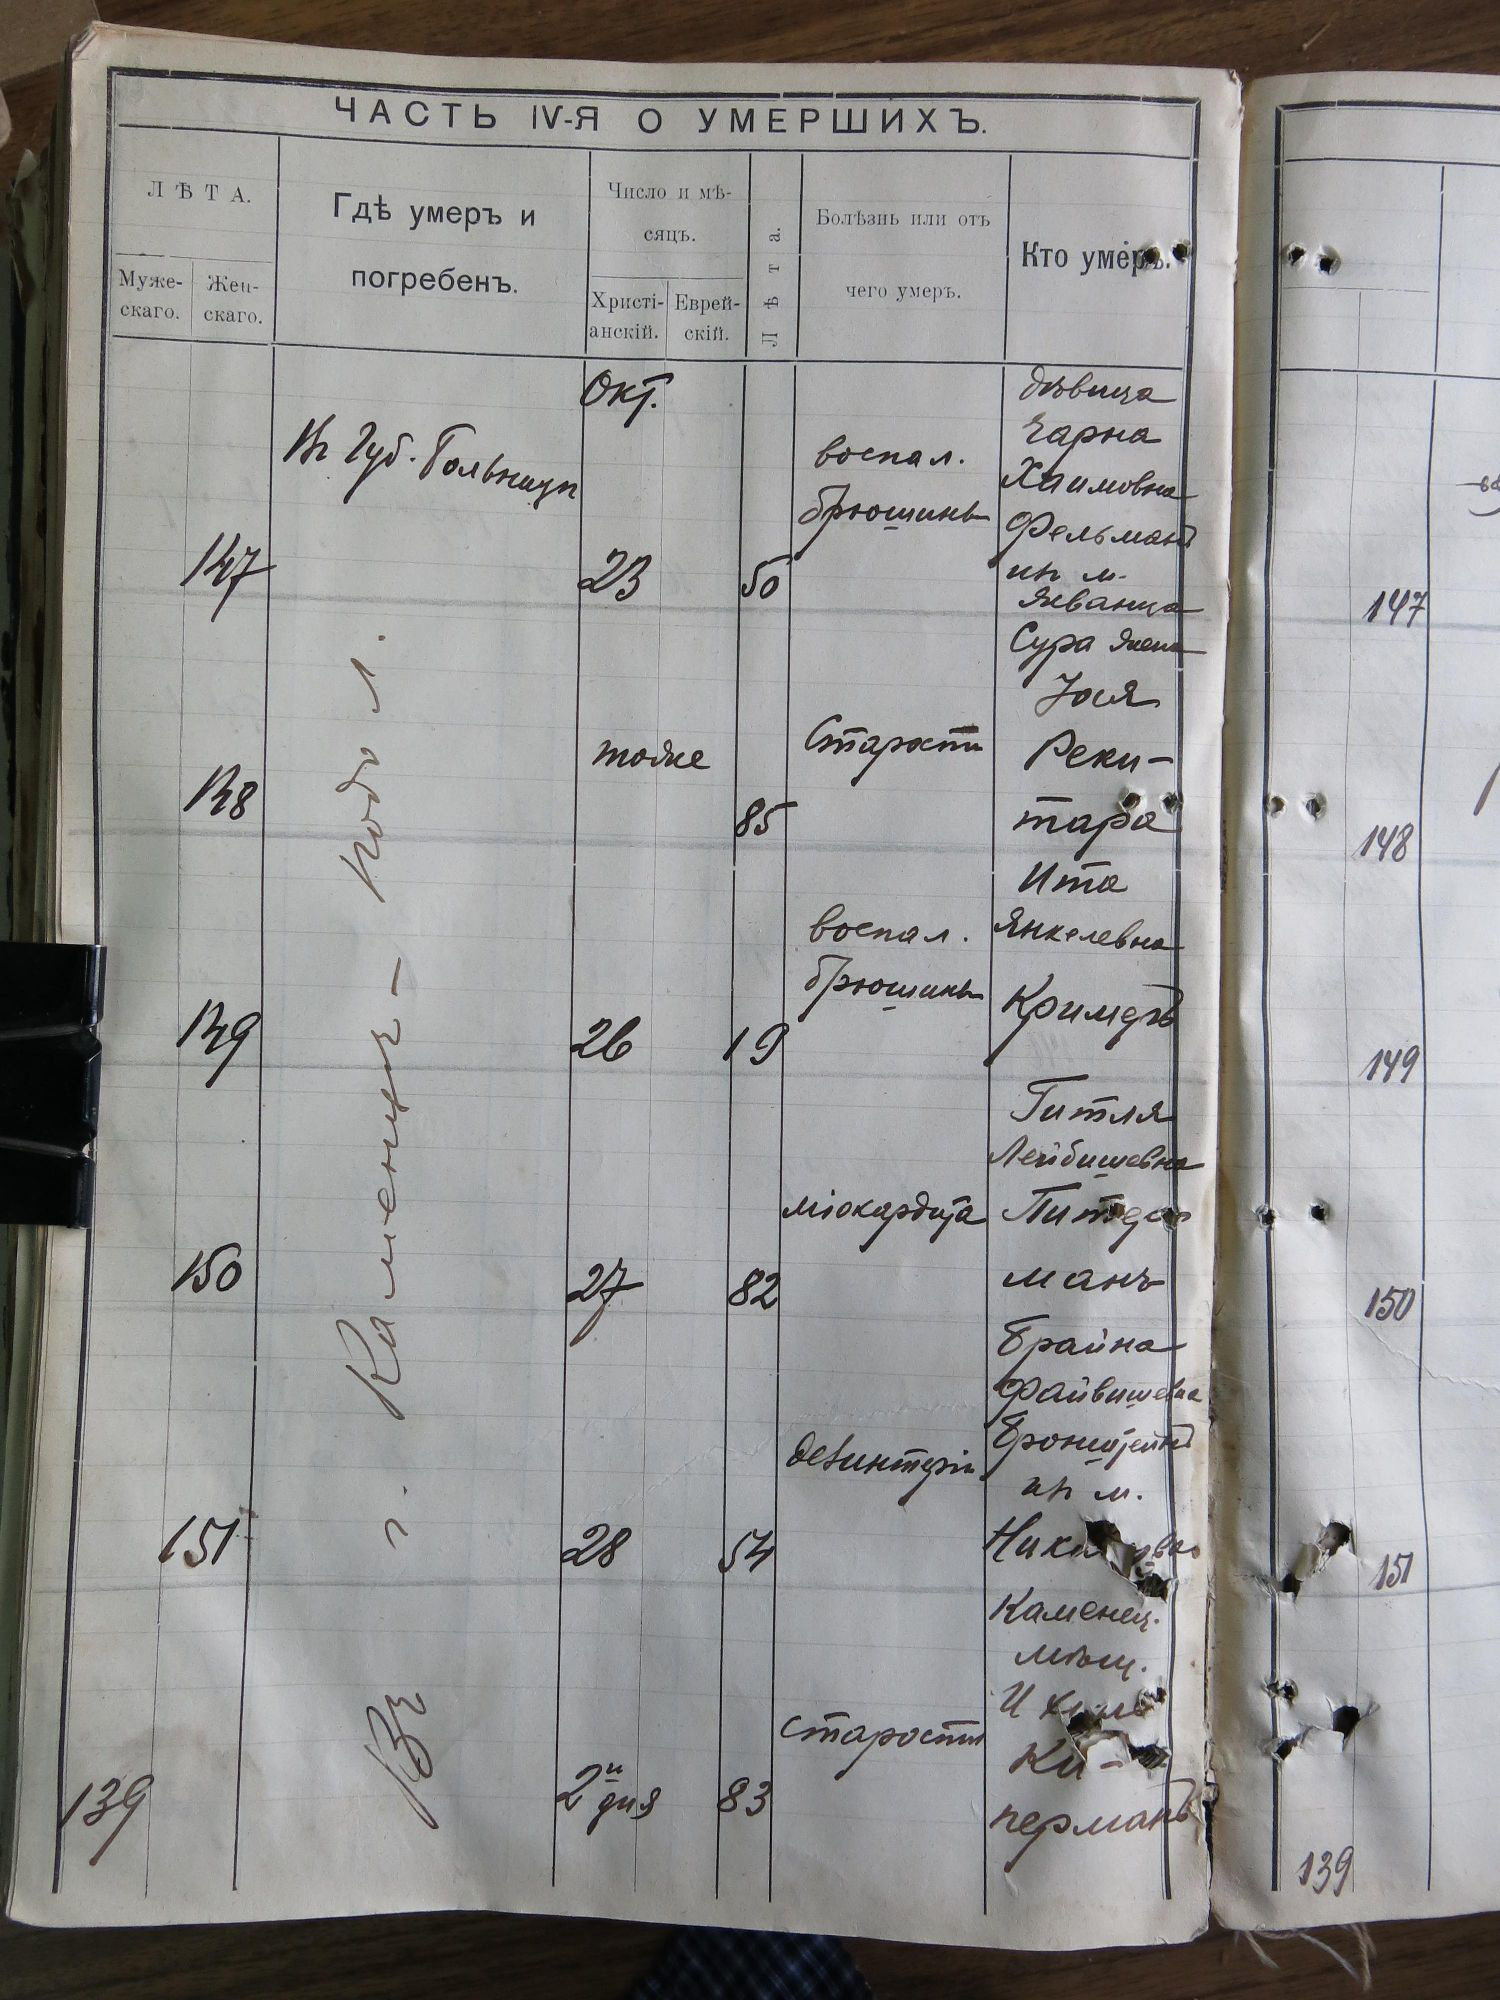 ЧАСТЬ IV-Я О УМЕРШИХЪ.
ЛѢТА.
Муже-
скаго.
Жен-
скаго.
Гдѣ умеръ и
погребенъ.
Число и мѣ-
сяцъ.
Христі-
анскій.
Еврей-
скій.
Лѣта.
Болѣзнь или отъ
чего умеръ.
Кто умеръ.
Въ г. Каменцѣ-Подол.
147
Въ Губ. Больницѣ
Окт.
23
50
воспал.
брюшины
дѣвица
Чарна
Хаимовна
Фельманъ
изъ м.
148
тоже
85
Старости
Сура
Реки-
тара
149
26
19
воспал.
брюшины
Ита
Янкелевна
Кримеръ
150
27
82
міокардита
Гитля
Лейбишевна
манъ
151
28
54
дезинтеріи
Брайна
Файвишевна
Бронштейнъ
изъ м.
139
2й
дня
83
старости
Каменец.
мѣщ.
Ки-
перманъ
147
148
149
150
151
139